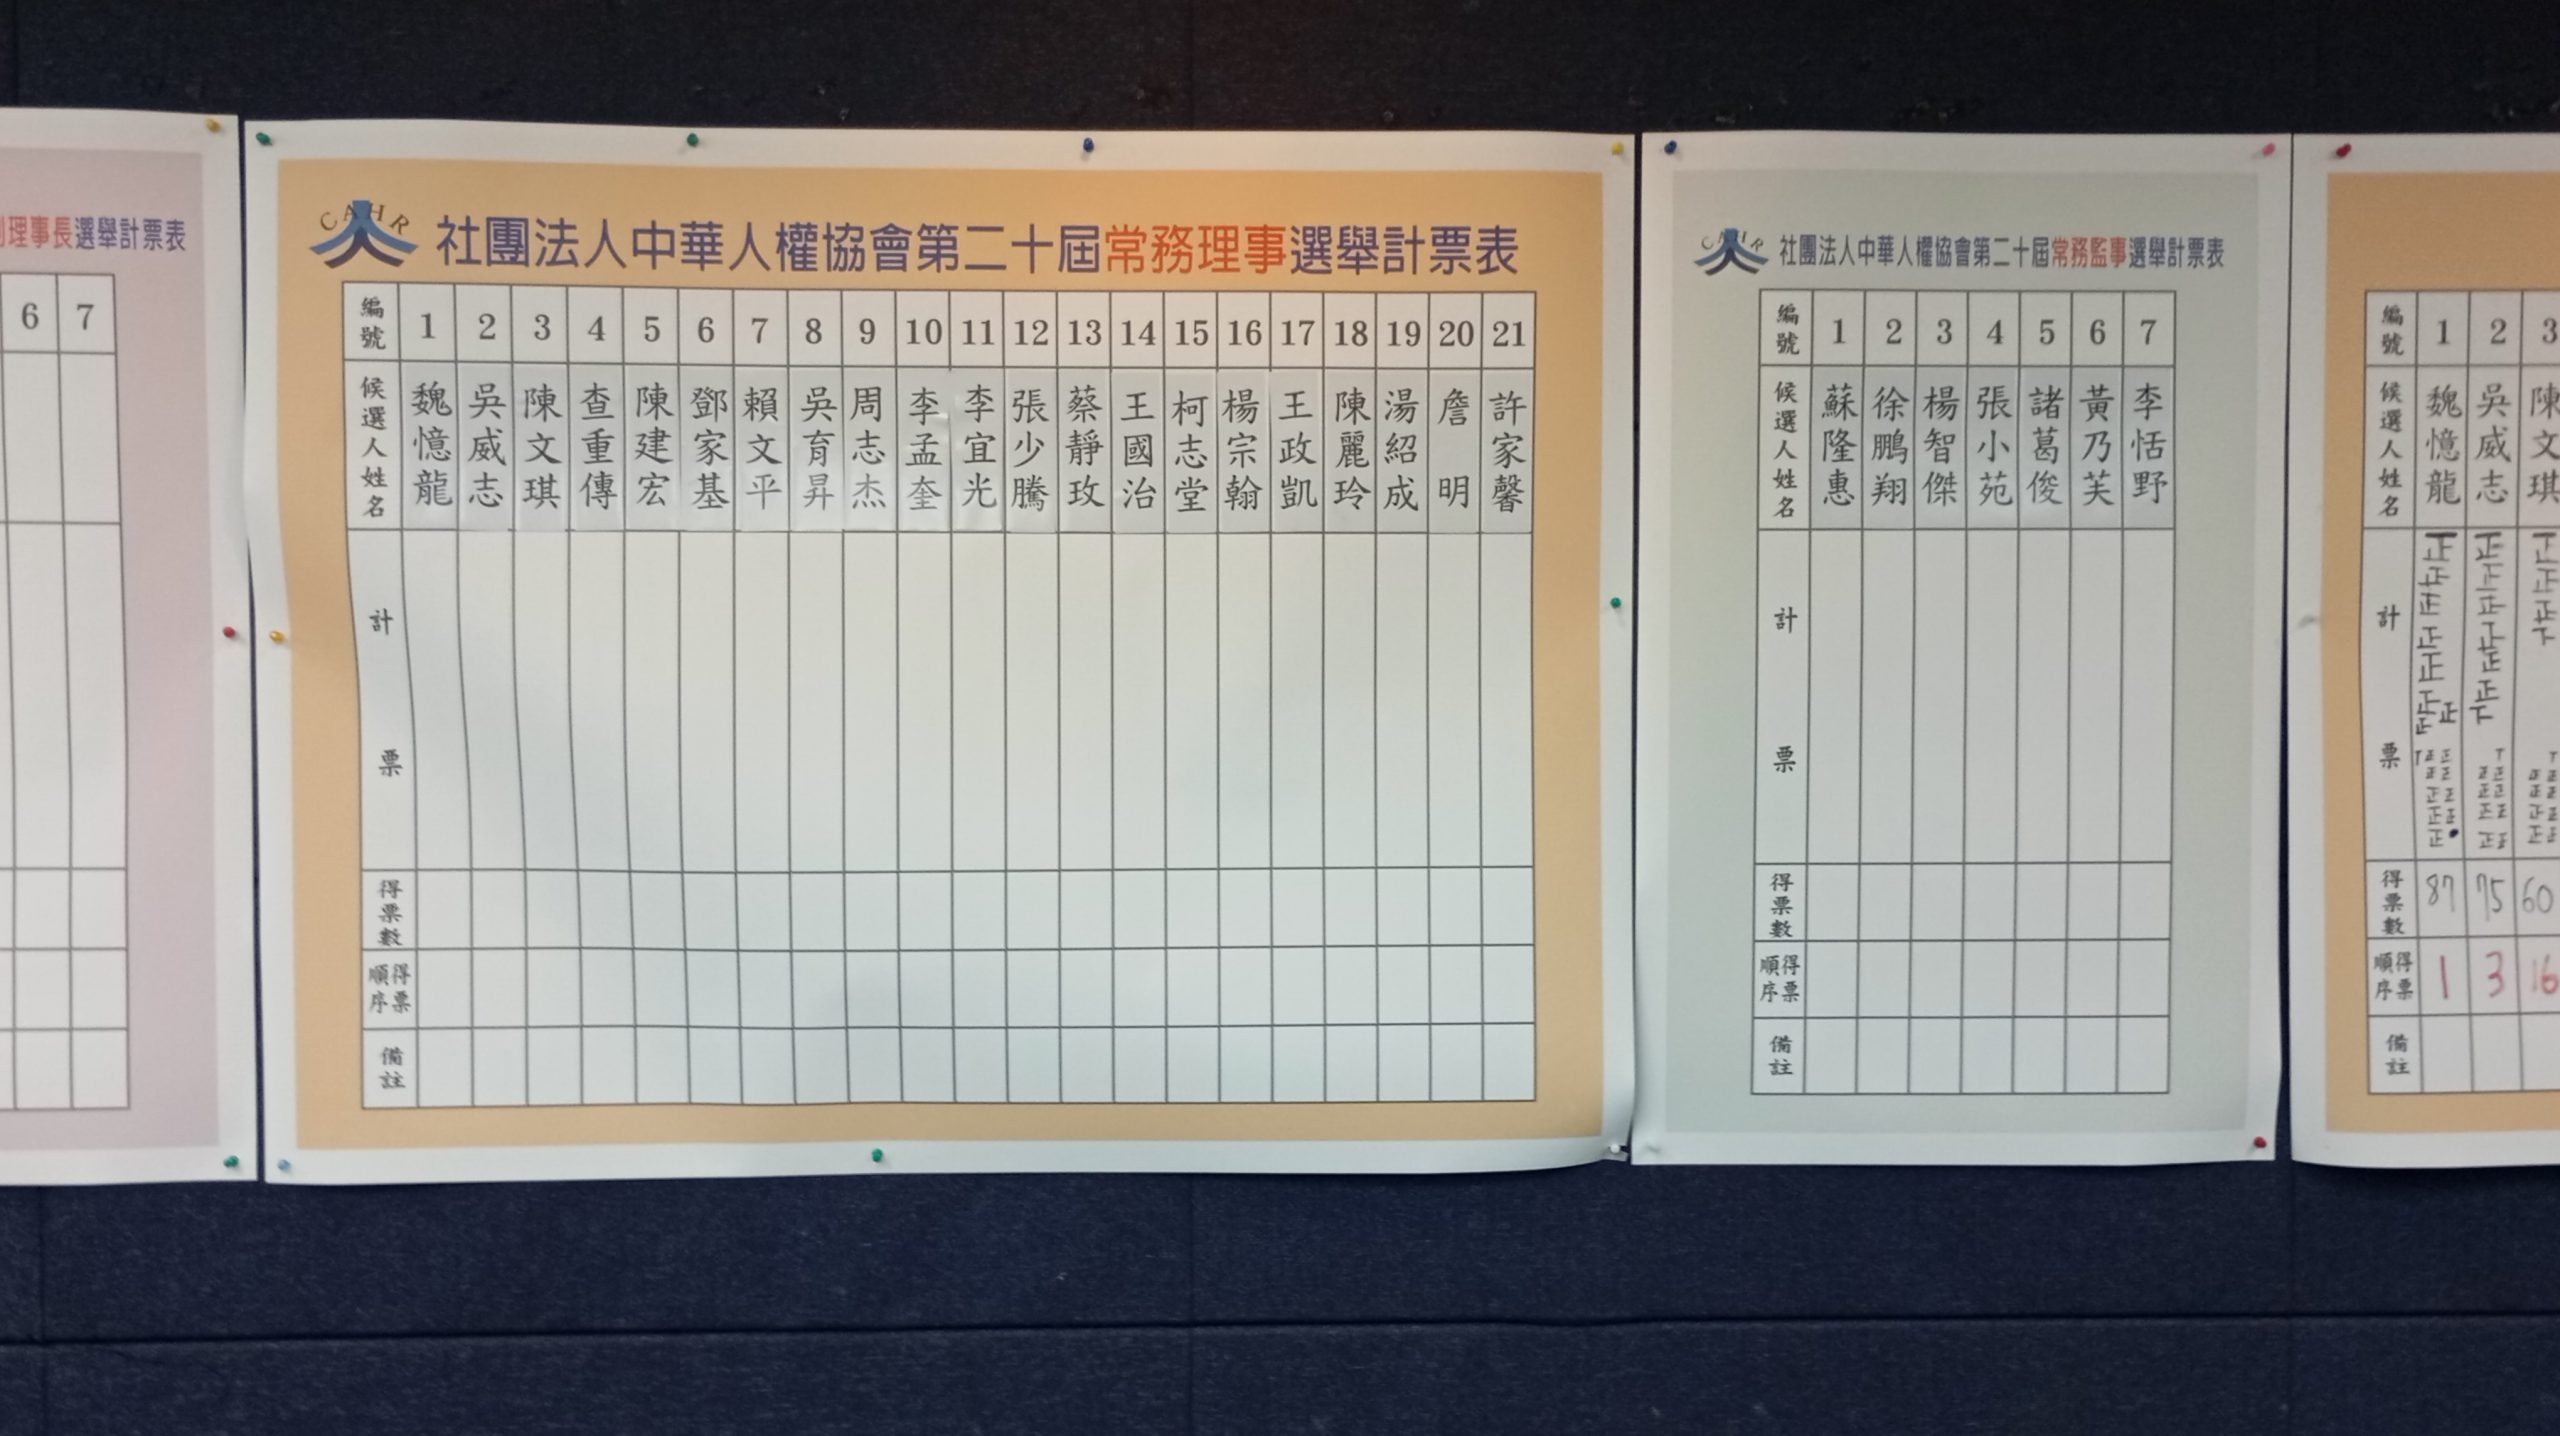 理事長選舉計票表
6 7
CAHR
社團法人中華人權協會第二十屆常務理事選舉計票表
編號 1 2 3 4 5 6 7 8 9 10 11 12 13 14 15 16 17 18 19 20 21
候選人姓名 魏憶龍 吳威志 陳文琪 查重傳 陳建宏 鄧家基 賴文平 吳育昇 周志杰 李孟奎 李宜光 張少騰 蔡靜玫 王國治 柯志堂 楊宗翰 王政凱 陳麗玲 湯紹成 詹明 許家馨
計票
得票數
得票順序
備註
CAHR
社團法人中華人權協會第二十屆常務監事選舉計票表
編號 1 2 3 4 5 6 7
候選人姓名 蘇隆惠 徐鵬翔 楊智傑 張小苑 諸葛俊 黃乃芙 李恬野
計票
得票數
得票順序
備註
編號 1 2 3
候選人姓名 魏憶龍 吳威志 陳文琪
計票
得票數 87 75 60
得票順序 1 3 16
備註